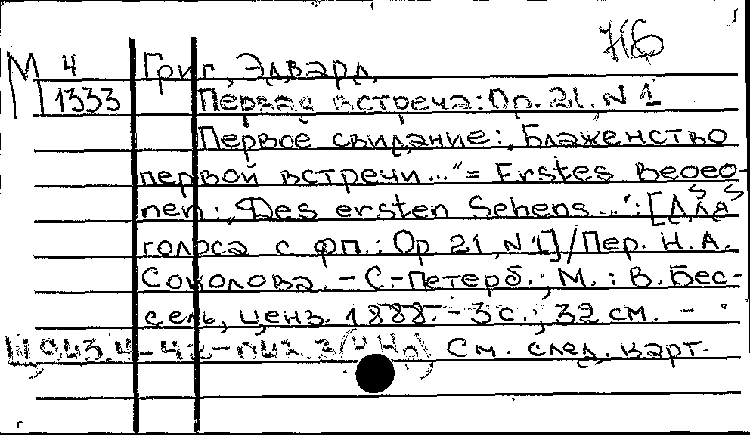 716
М 4 Григ, Эдвард.
1333 Первая встреча: Ор. 21. N 1
Первое свидание: „Блаженство
первой встречи..." = Erstes Begeg-
nen: „Des ersten Sehens...": [Для
голоса с фп.: Ор 21, N 1] / Пер. Н.А.
Соколова. - С.-Петерб.; М.: В. Бес-
сель, ценз. 1888. - 3 с.; 32 см. -
См. след. карт.